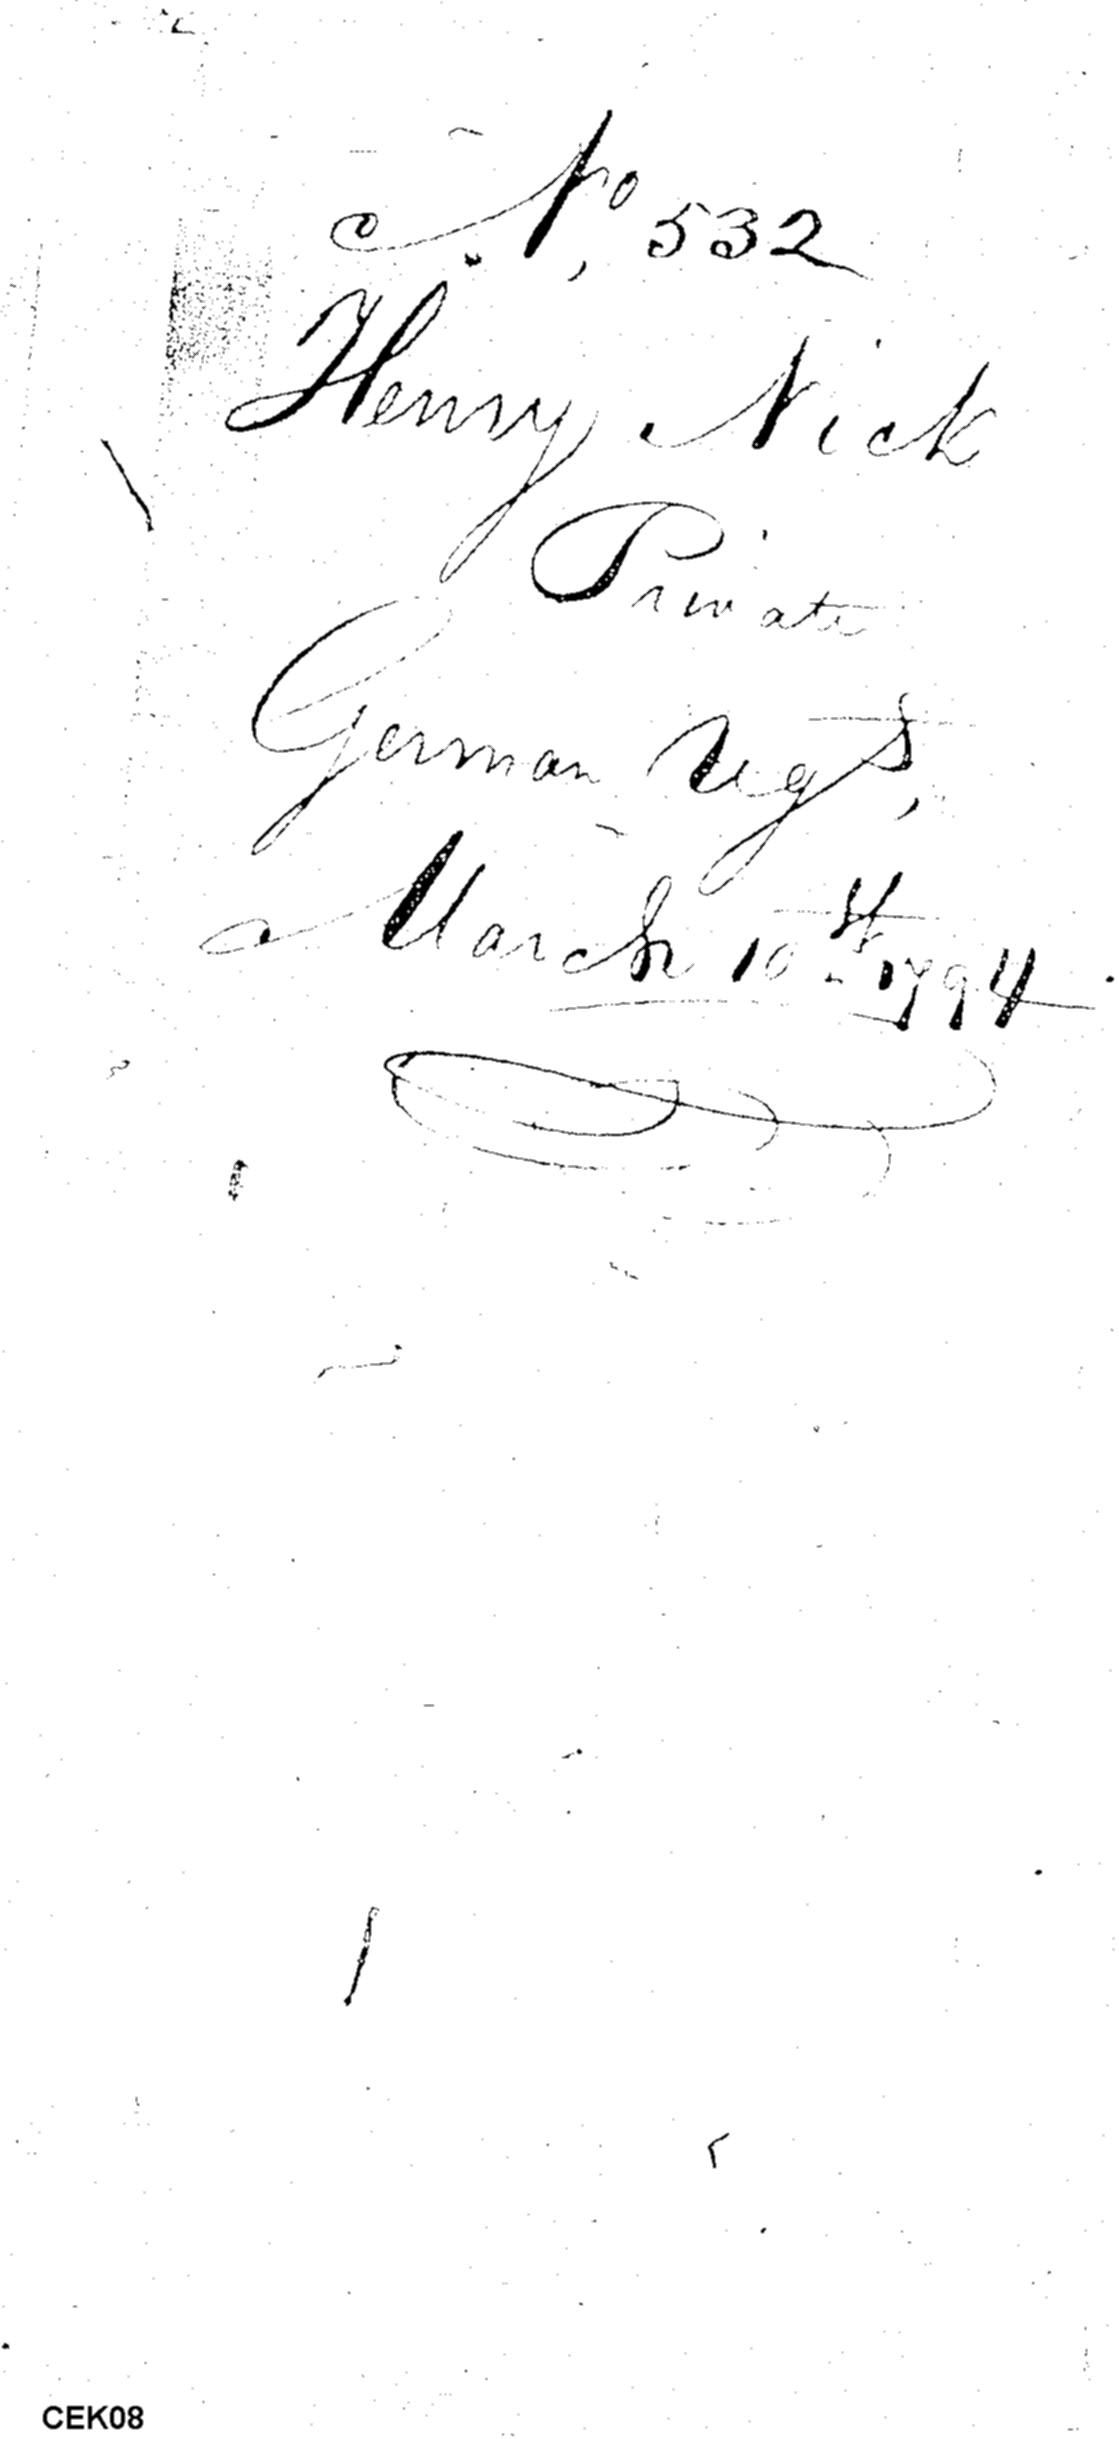 No, 532
Henry Nick
Private
German Regt,
March 10th 1794
CEK08